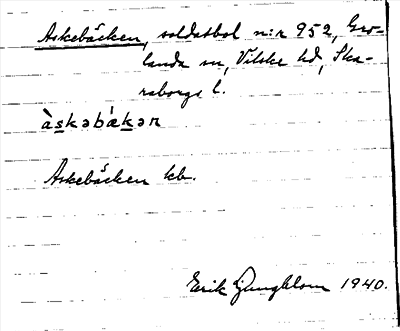 Askebäcken, soldatbol n:r 952, Gro-
landa sn, Vilske hd, Ska-
raborgs l.
àskəbä́kən
Askebäcken kb.
Erik Ljungblom 1940.